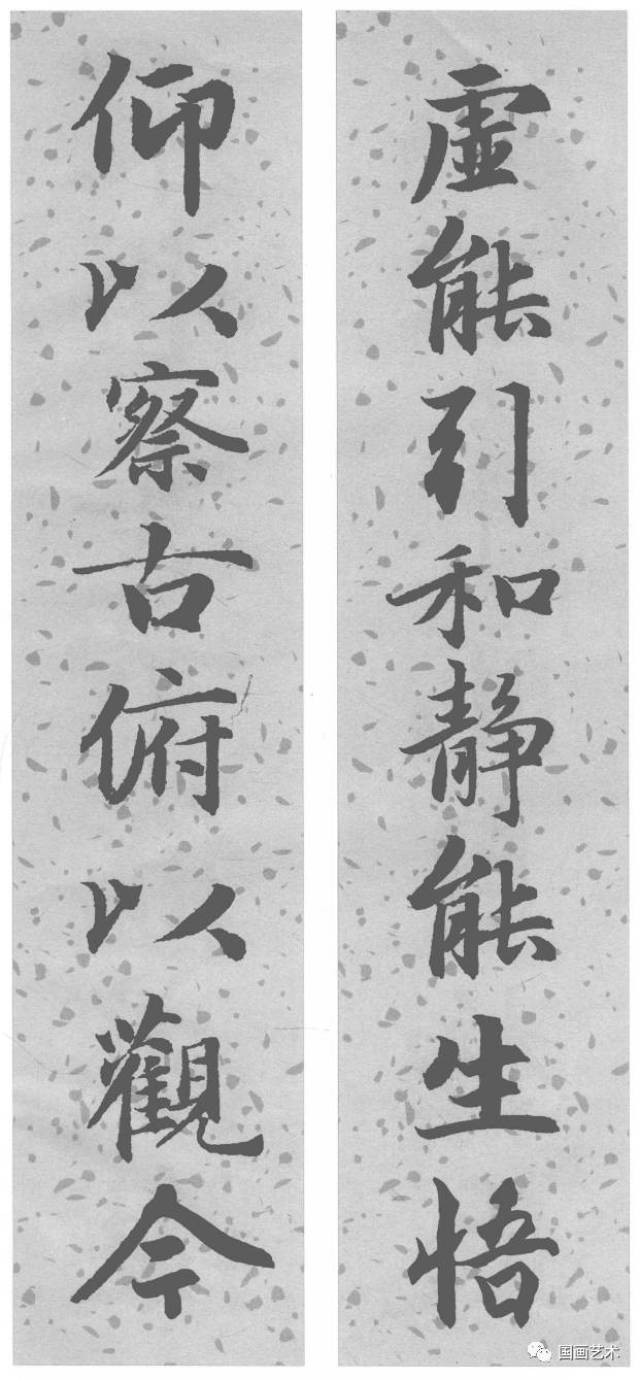 虚能引和静能生悟
仰以察古俯以觀今
国画艺术